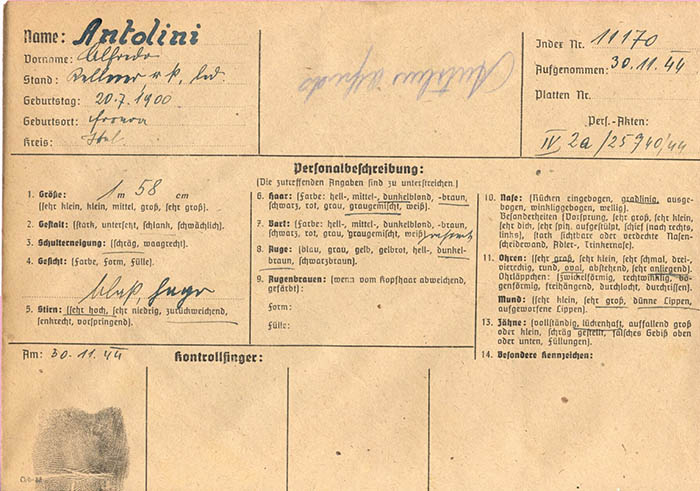 Name: Antolini
Vorname: Alfredo
Stand: Kellner r.k. led.
Geburtstag: 20.7.1900
Geburtsort:
Kreis: Ital.
Antolini Alfredo
Index Nr. 11170
Aufgenommen: 30.11.44
Platten Nr.
Pers.-Akten:
IV 2a/25940/44
Personalbeschreibung:
(Die zutreffenden Angaben sind zu unterstreichen.)
1. Größe: 1 m 58 cm
(sehr klein, klein, mittel, groß, sehr groß).
2. Gestalt: (stark, untersetzt, schlank, schwächlich).
3. Schulterneigung: (schräg, waagrecht).
4. Gesicht: (Farbe, Form, Fülle).
5. Stirn: (sehr hoch, sehr niedrig, zurückweichend,
senkrecht, vorspringend).
6. Haar: (Farbe: hell-, mittel-, dunkelblond, -braun,
schwarz, rot, grau, graugemischt, weiß).
7. Bart: (Farbe: hell-, mittel-, dunkelblond, -braun,
schwarz, rot, grau, graugemischt, weiß)
8. Auge: (blau, grau, gelb, gelbrot, hell-, dunkel-
braun, schwarzbraun).
9. Augenbrauen: (wenn vom Kopfhaar abweichend,
gefärbt):
Form:
Fülle:
10. Nase: (Rücken eingebogen, gradlinig, ausge-
bogen, winkliggebogen, wellig).
Besonderheiten (Vorsprung, sehr groß, sehr klein,
sehr dick, sehr spitz, aufgestülpt, schief (nach rechts,
links), stark sichtbare oder verdeckte Nasen-
scheidewand, Adler-, Trinkernase).
11. Ohren: (sehr groß, sehr klein, sehr schmal, drei-,
vierreckig, rund, oval, abstehend, sehr anliegend).
Ohrläppchen: (zwickelförmig, rechtwinklig, bo-
genförmig, freihängend, durchlocht, durchrissen).
Mund: (sehr klein, sehr groß, dünne Lippen,
aufgeworfene Lippen).
13. Zähne: (vollständig, lückenhaft, auffallend groß
oder klein, schräg gestellt, falsches Gebiß oben
oder unten, Füllungen).
14. Besondere Kennzeichen:
Am: 30.11.44
Kontrollfinger: